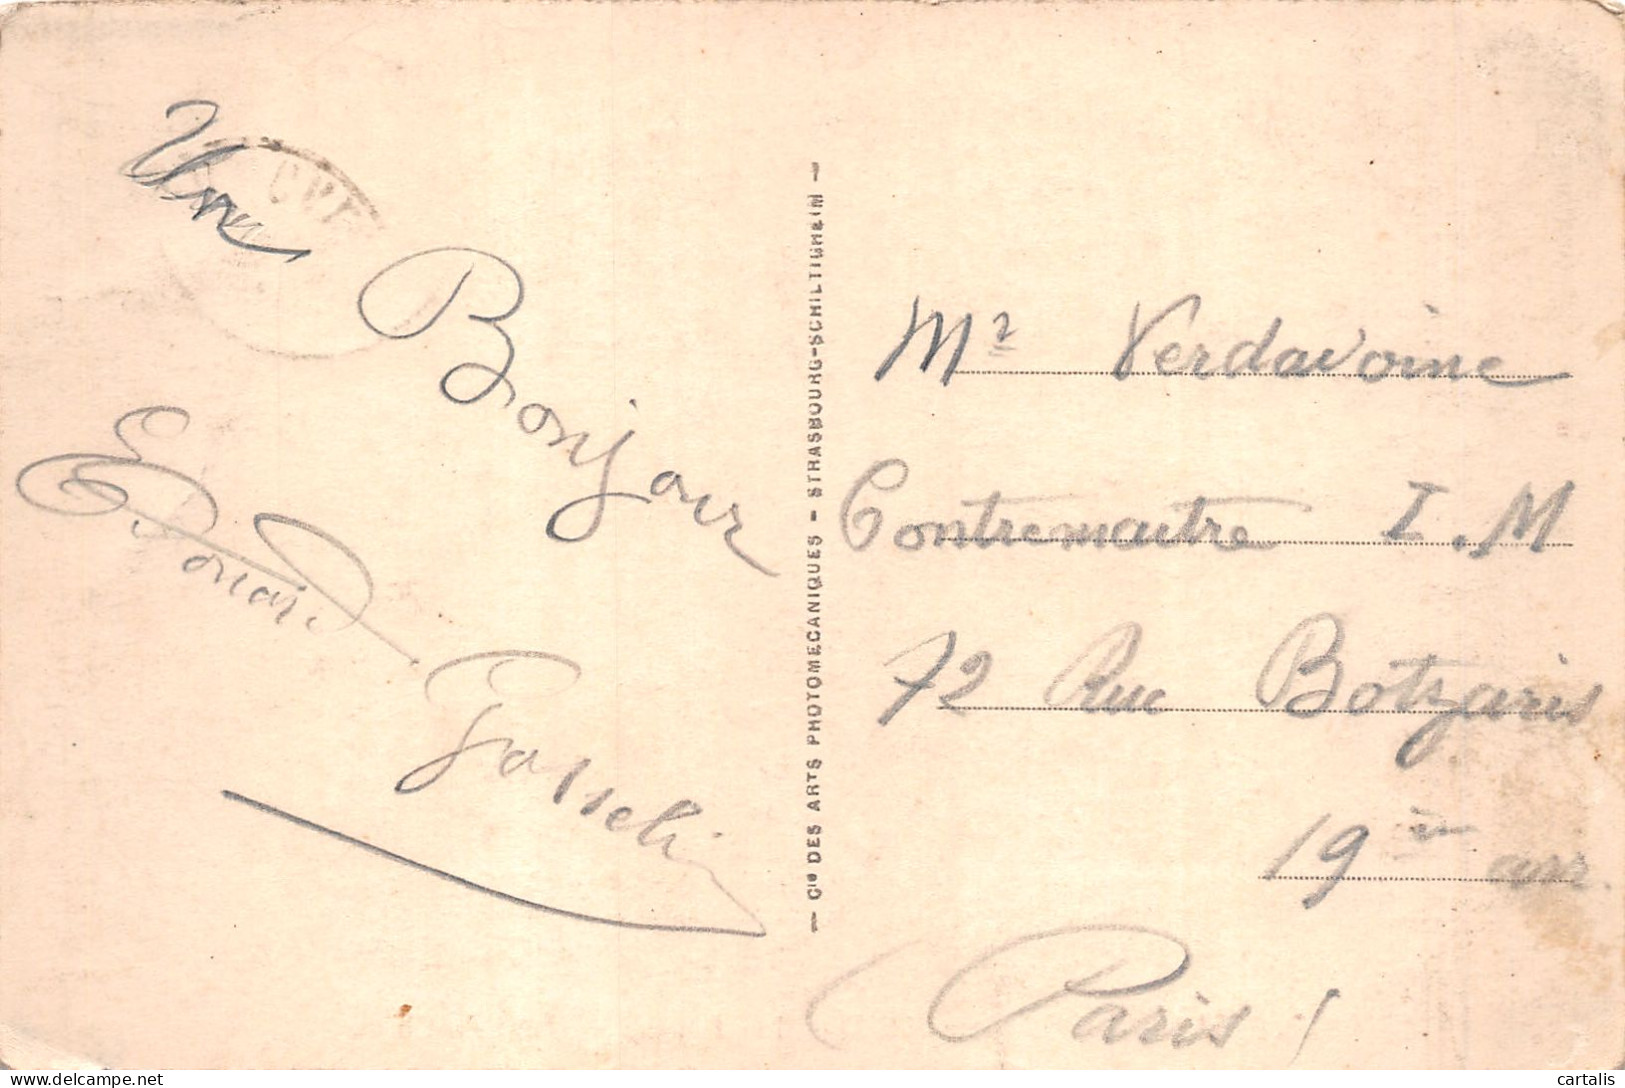 Un
Bonjour
Edouard
Gosselin
— Cie DES ARTS PHOTOMECANIQUES - STRASBOURG-SCHILTIGHEIM —
Mr Verdavoine
Contremaitre I.M
72 Rue Botzaris
19èm arr.
(Paris)
delcampe.net
cartalis